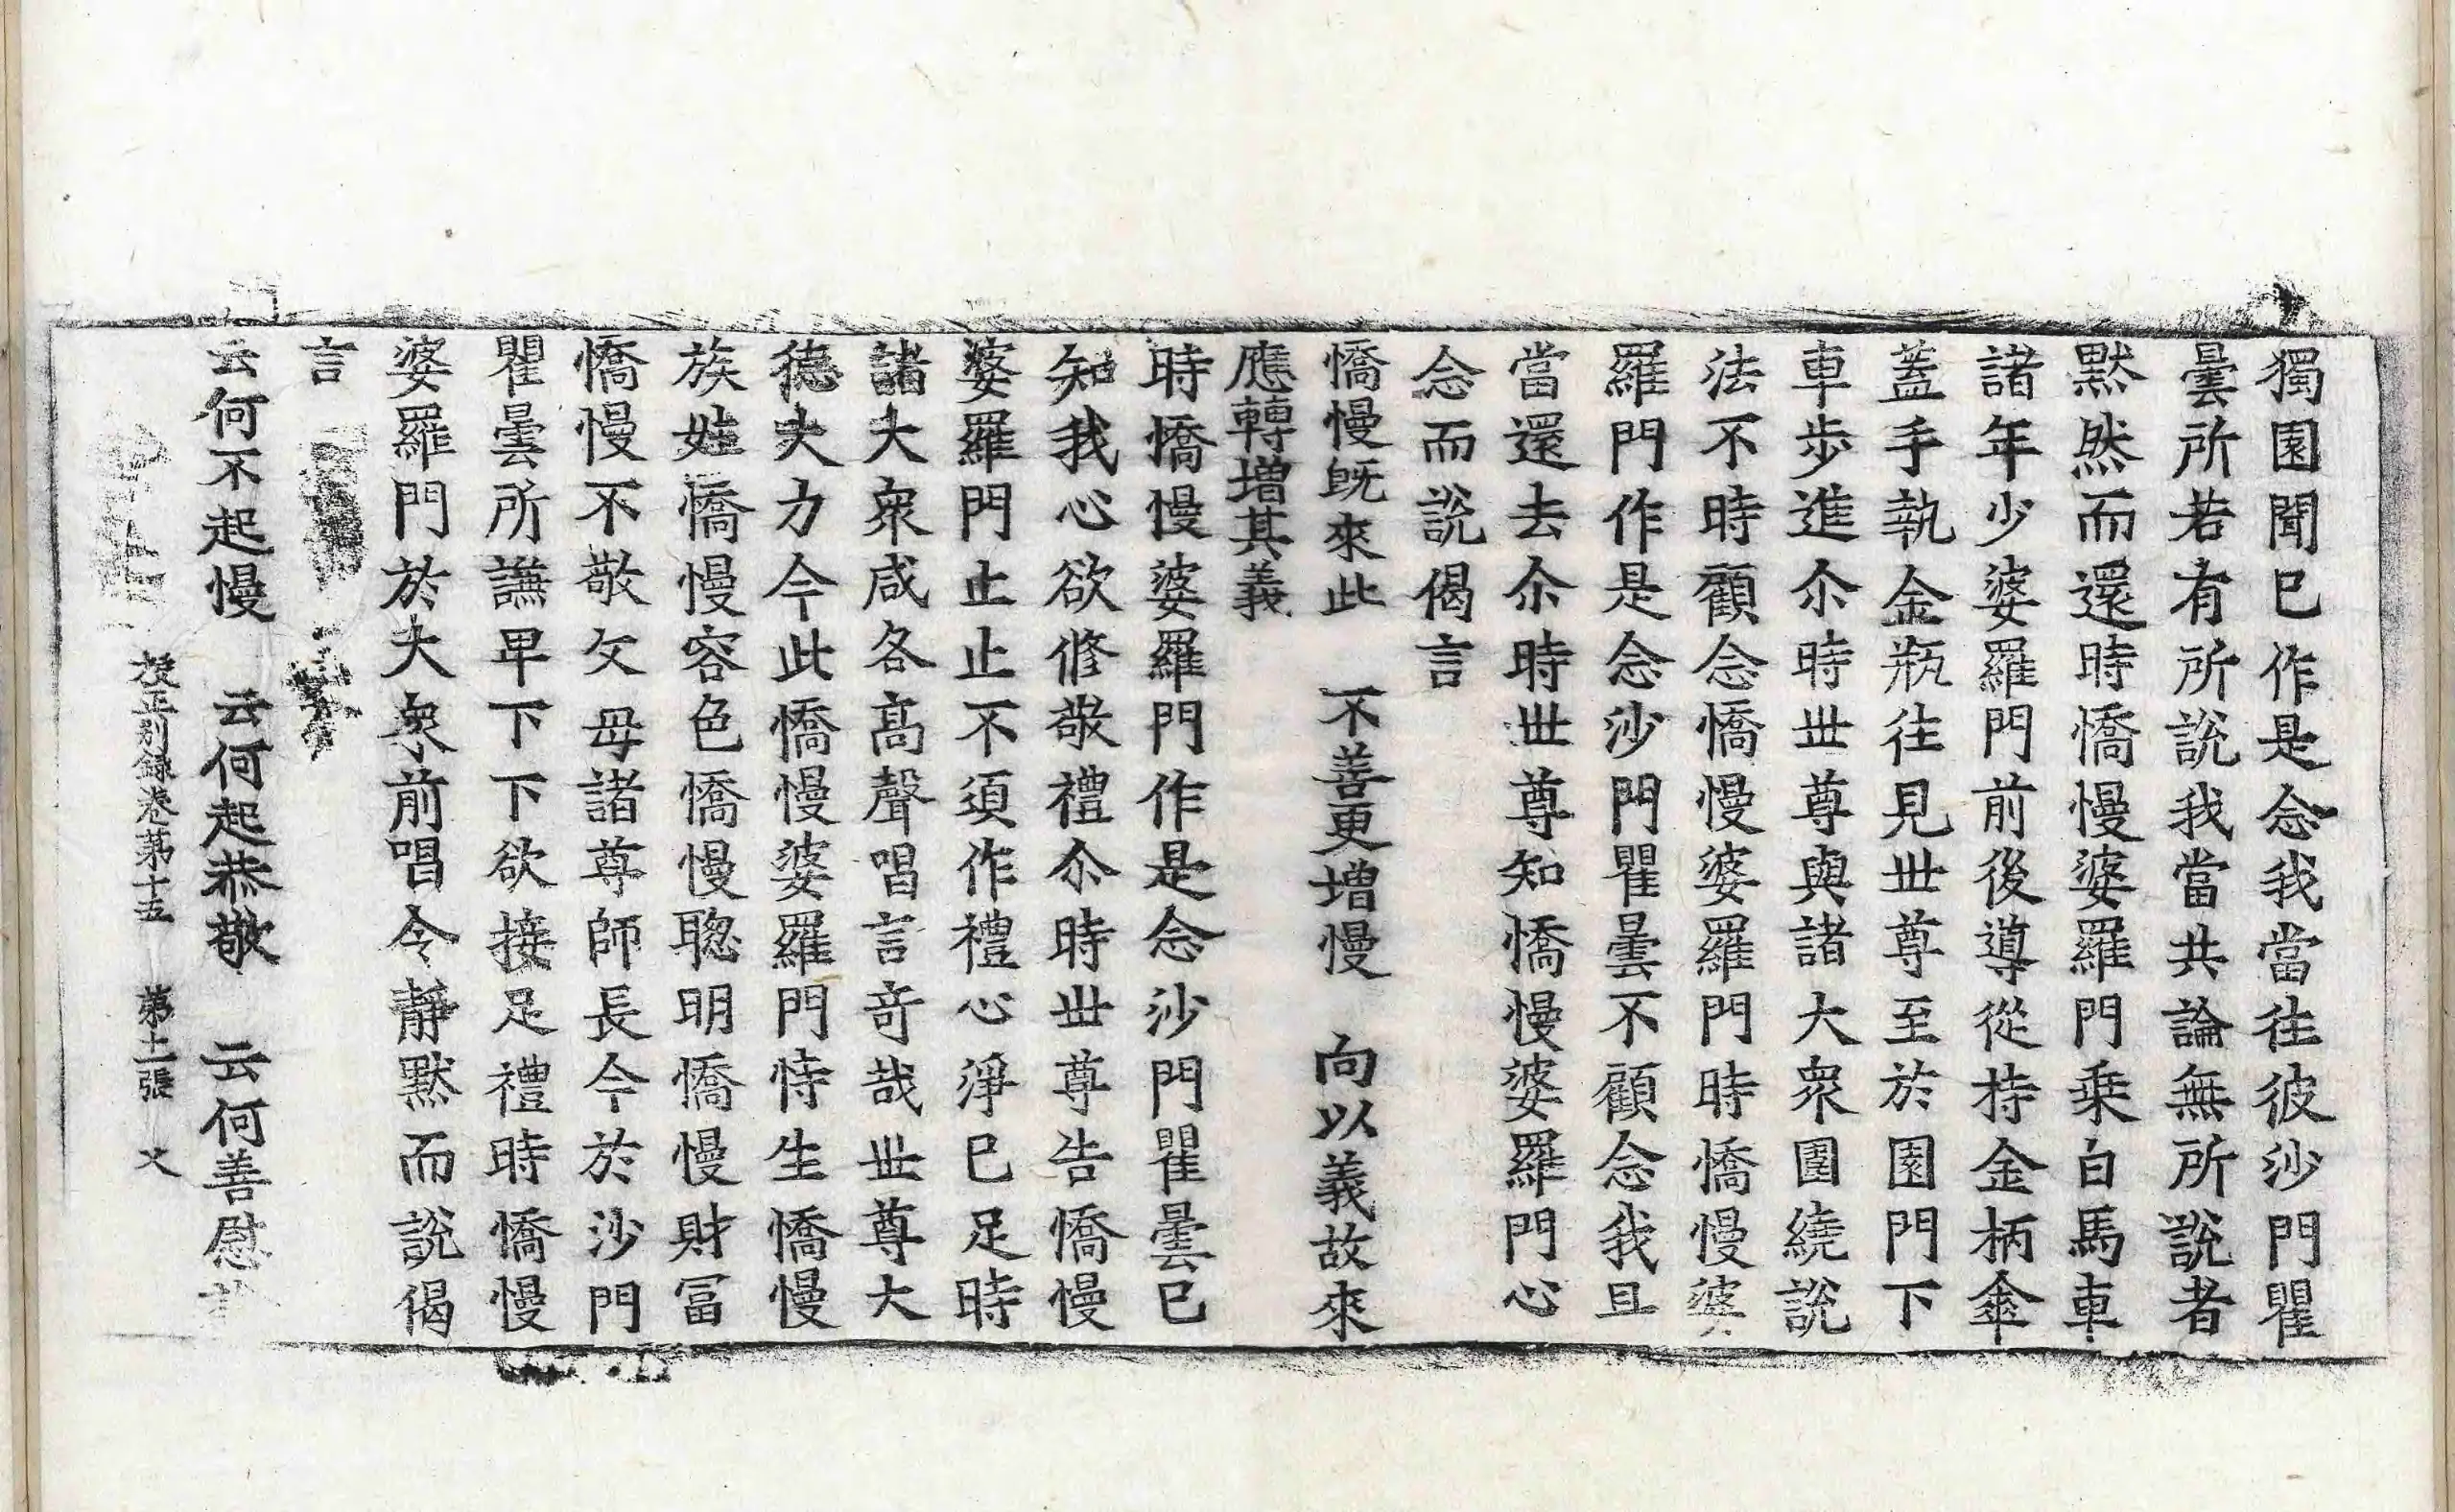 獨園聞已作是念我當往彼沙門瞿
曇所若有所說我當共論無所說者
默然而還時憍慢婆羅門乗白馬車
諸年少婆羅門前後導從持金柄傘
蓋手執金瓶往見丗尊至於園門下
車步進尒時丗尊與諸大衆圍繞說
法不時顧念憍慢婆羅門時憍慢婆
羅門作是念沙門瞿曇不顧念我且
當還去尒時丗尊知憍慢婆羅門心
念而說偈言
憍慢旣來此　不善更增慢　向以義故來
應轉增其義
時憍慢婆羅門作是念沙門瞿曇已
知我心欲修敬禮尒時丗尊告憍慢
婆羅門止止不須作禮心淨已足時
諸大衆咸各髙聲唱言竒哉丗尊大
德大力今此憍慢婆羅門恃生憍慢
族姓憍慢容色憍慢聦明憍慢財冨
憍慢不敬父母諸尊師長今於沙門
瞿曇所謙卑下下欲接足禮時憍慢
婆羅門於大衆前唱令靜默而說偈
言
云何不起慢　云何起恭敬　云何善慰
校正別錄卷苐十五　苐十二張　父